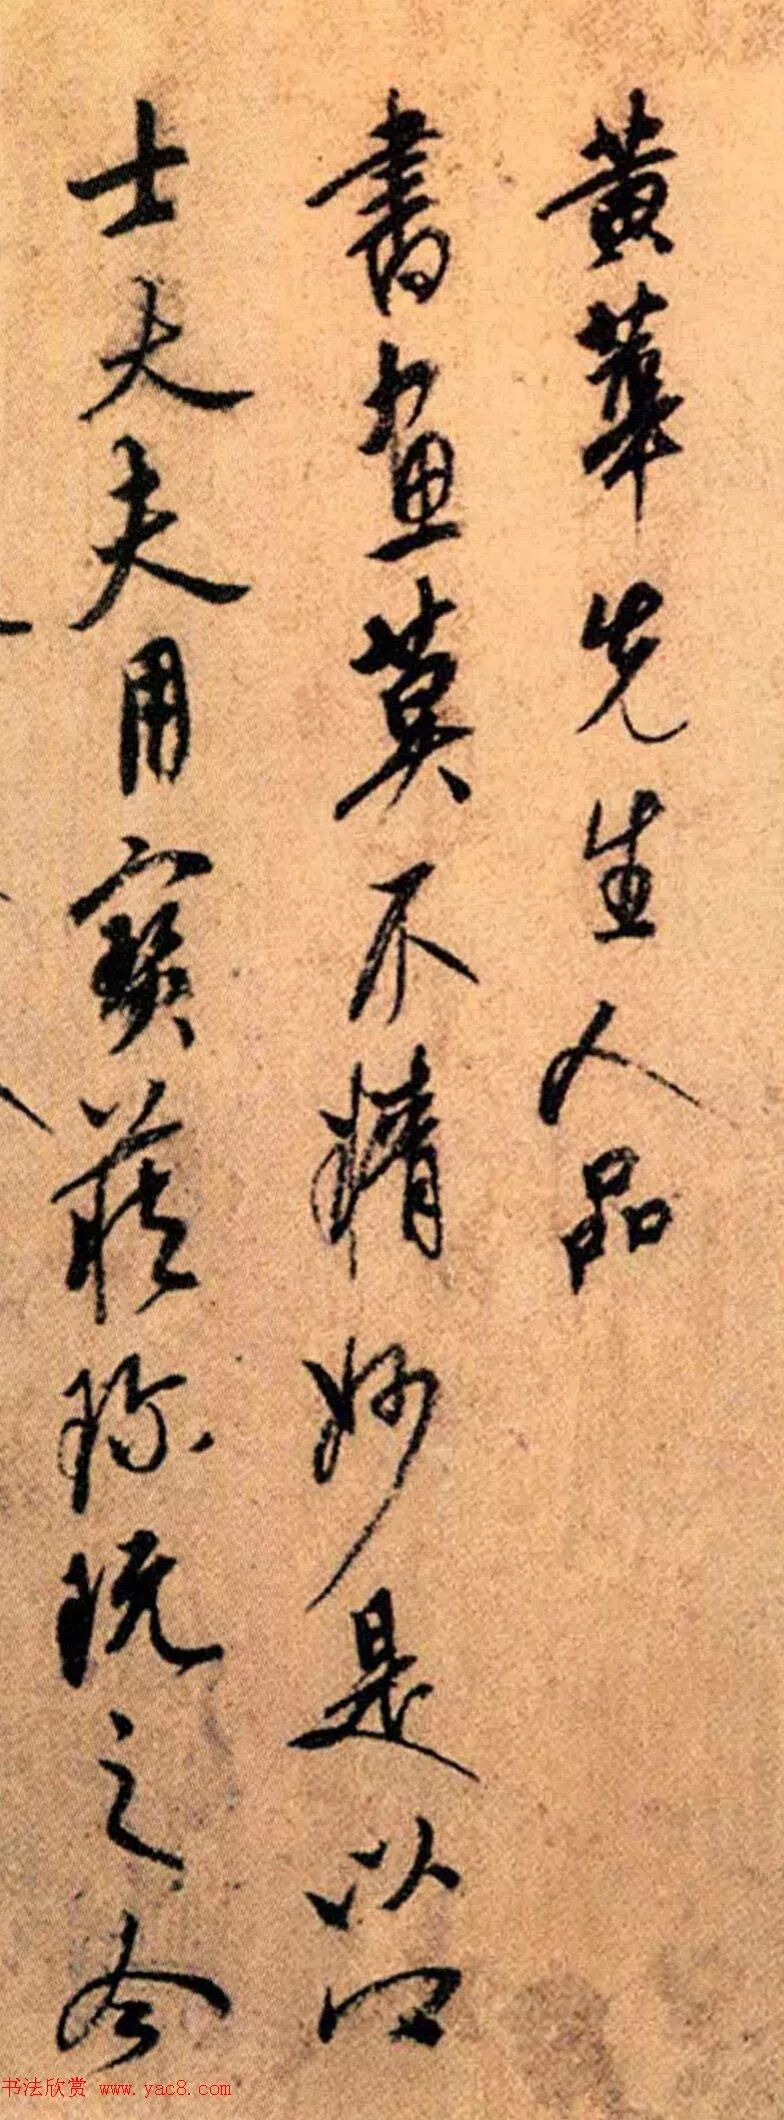 黄華先生人品
書畫莫不精妙是以四
士大夫用寳藏珎玩之今
书法欣赏 www.yac8.com